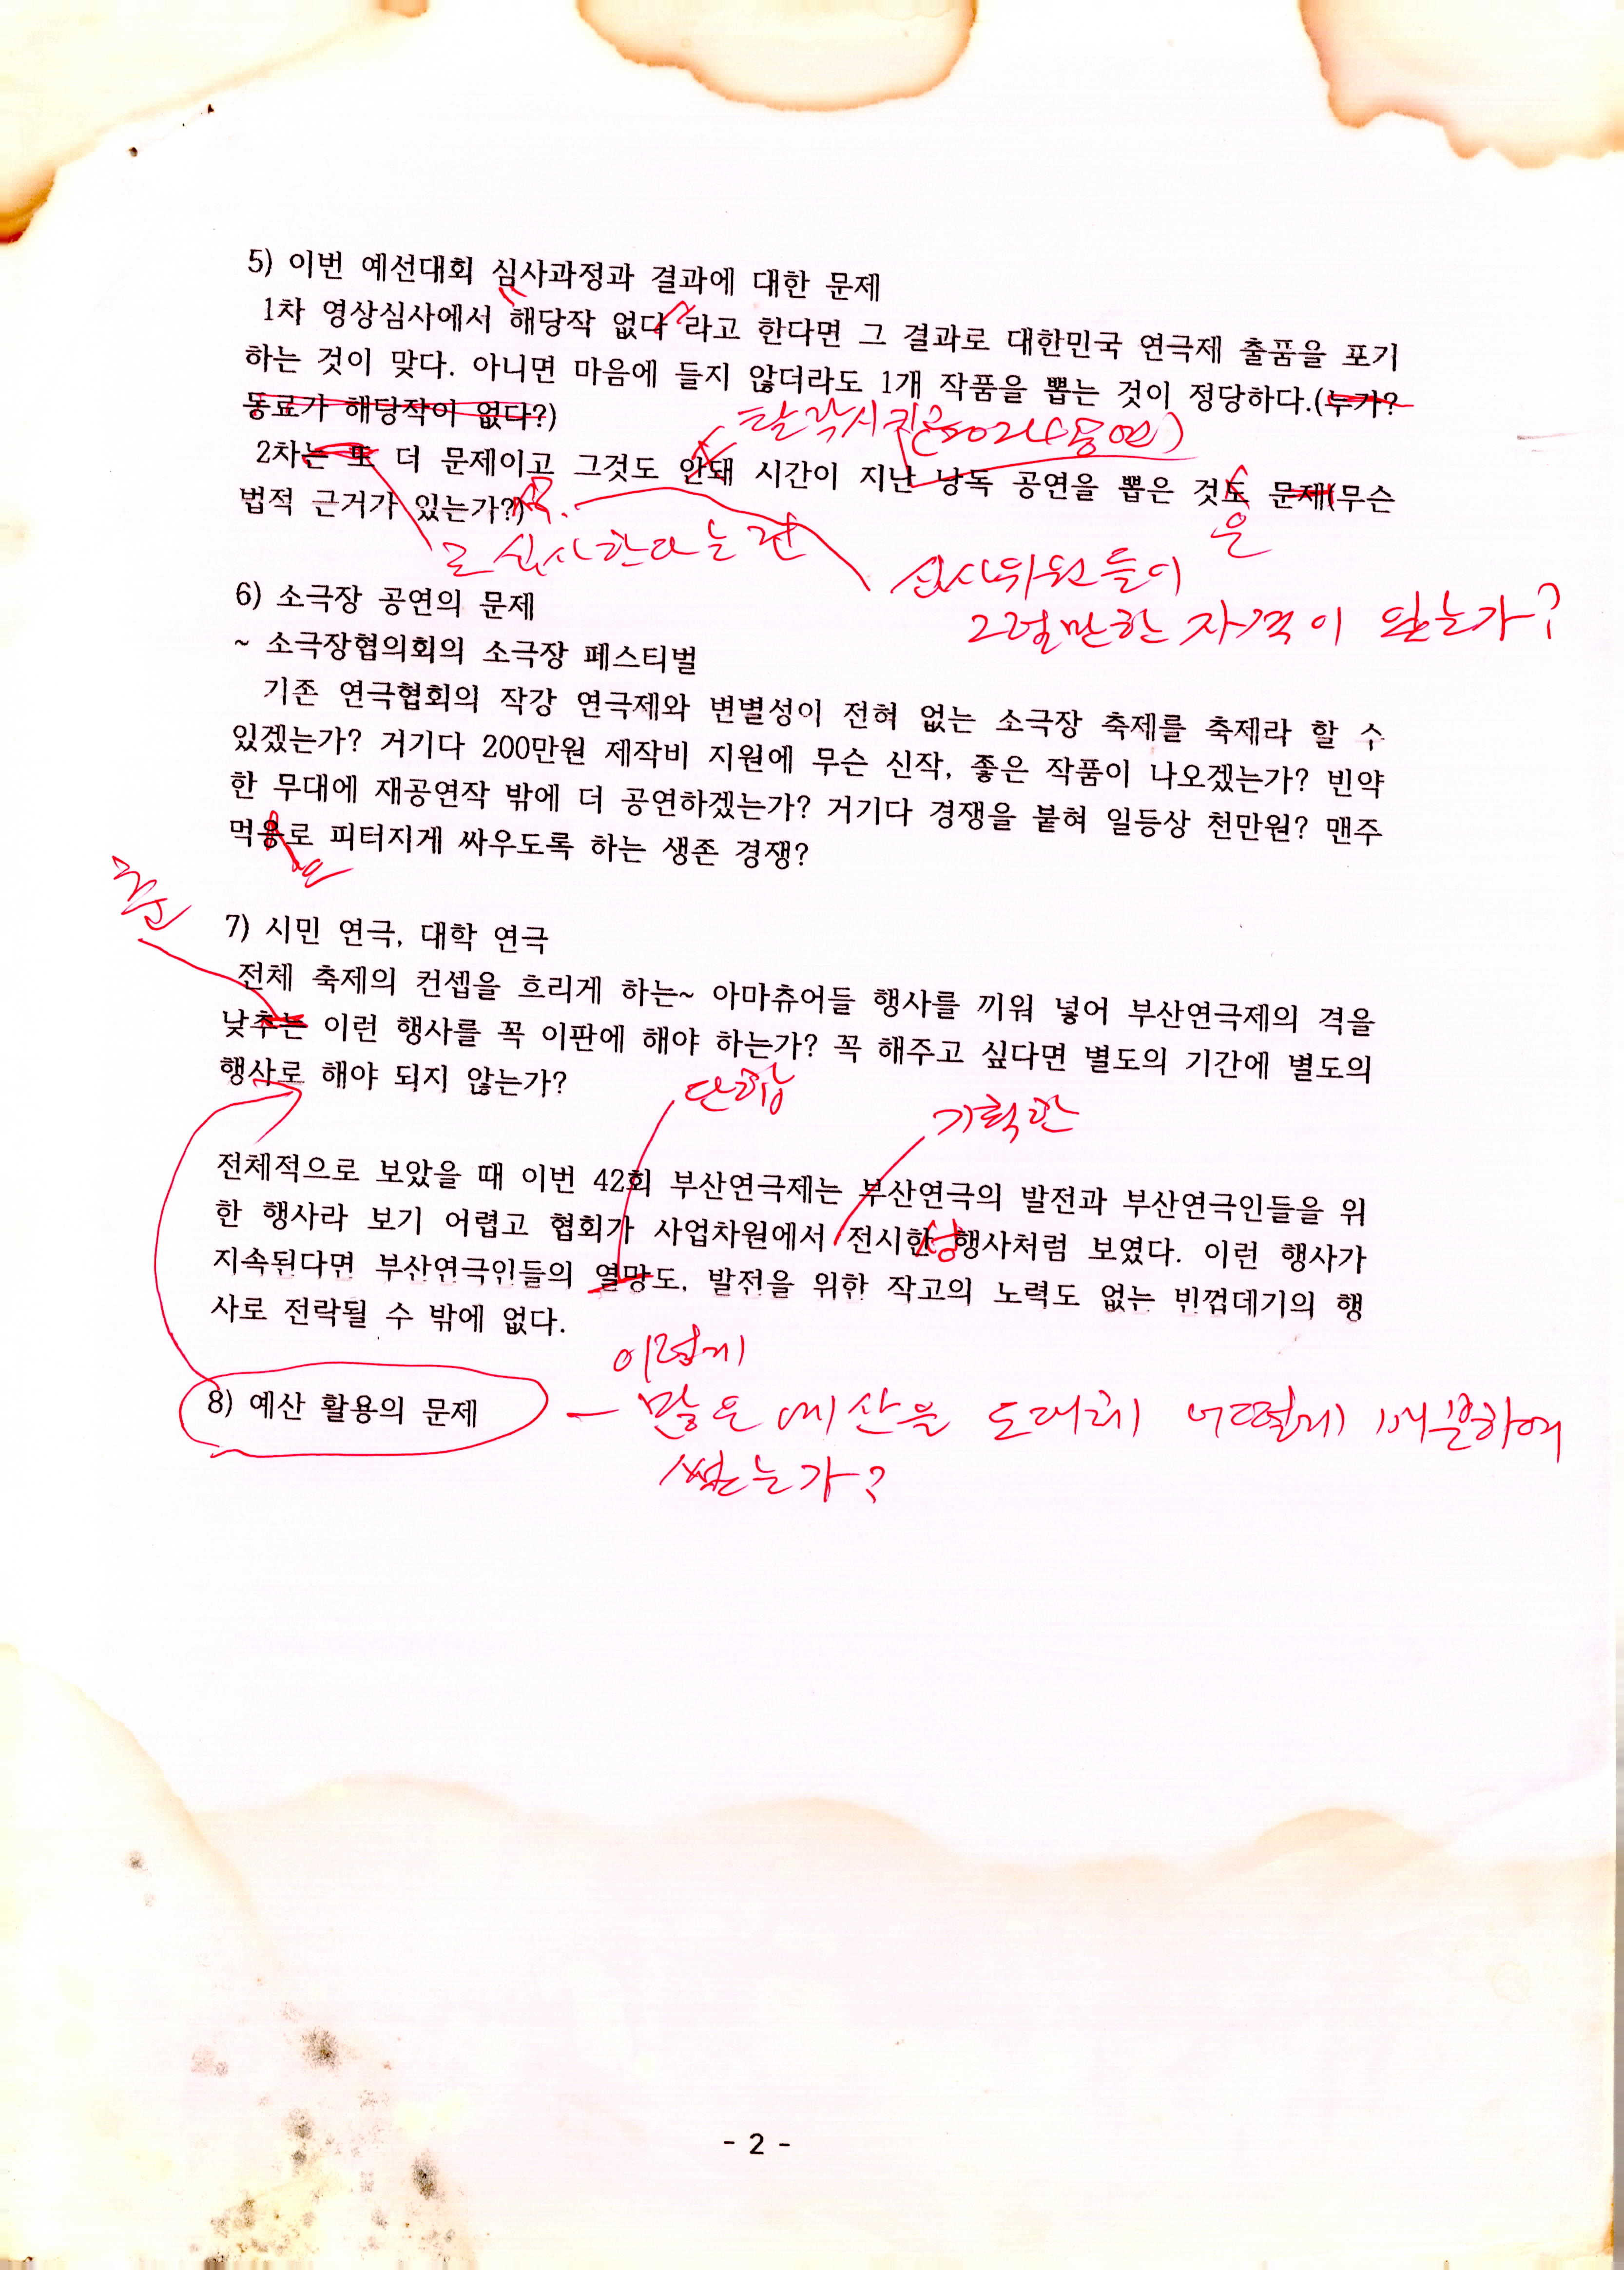 5) 이번 예선대회 심사과정과 결과에 대한 문제
1차 영상심사에서 "해당작 없다"라고 한다면 그 결과로 대한민국 연극제 출품을 포기
하는 것이 맞다. 아니면 마음에 들지 않더라도 1개 작품을 뽑는 것이 정당하다.(누가?
동료가 해당작이 없다?)
탈락시키고
2차는 또 더 문제이고 그것도 안돼 시간이 지난 낭독 공연을 뽑은 것도 문제(무슨
은
법적 근거가 있는가?)
로 심사한다는 건
심사위원들이
그럴만한 자격이 있는가?
6) 소극장 공연의 문제
~ 소극장협의회의 소극장 페스티벌
기존 연극협회의 작강 연극제와 변별성이 전혀 없는 소극장 축제를 축제라 할 수
있겠는가? 거기다 200만원 제작비 지원에 무슨 신작, 좋은 작품이 나오겠는가? 빈약
한 무대에 재공연작 밖에 더 공연하겠는가? 거기다 경쟁을 붙혀 일등상 천만원? 맨주
먹응로 피터지게 싸우도록 하는 생존 경쟁?
으
춘
7) 시민 연극, 대학 연극
전체 축제의 컨셉을 흐리게 하는~ 아마츄어들 행사를 끼워 넣어 부산연극제의 격을
낮추는 이런 행사를 꼭 이판에 해야 하는가? 꼭 해주고 싶다면 별도의 기간에 별도의
행사로 해야 되지 않는가?
단합
기획한
전체적으로 보았을 때 이번 42회 부산연극제는 부산연극의 발전과 부산연극인들을 위
한 행사라 보기 어렵고 협회가 사업차원에서 전시한 행사처럼 보였다. 이런 행사가
성
지속된다면 부산연극인들의 열망도, 발전을 위한 작고의 노력도 없는 빈껍데기의 행
사로 전락될 수 밖에 없다.
이렇게
8) 예산 활용의 문제 - 많은 예산을 도대체 어떻게 배분하여
썼는가?
- 2 -